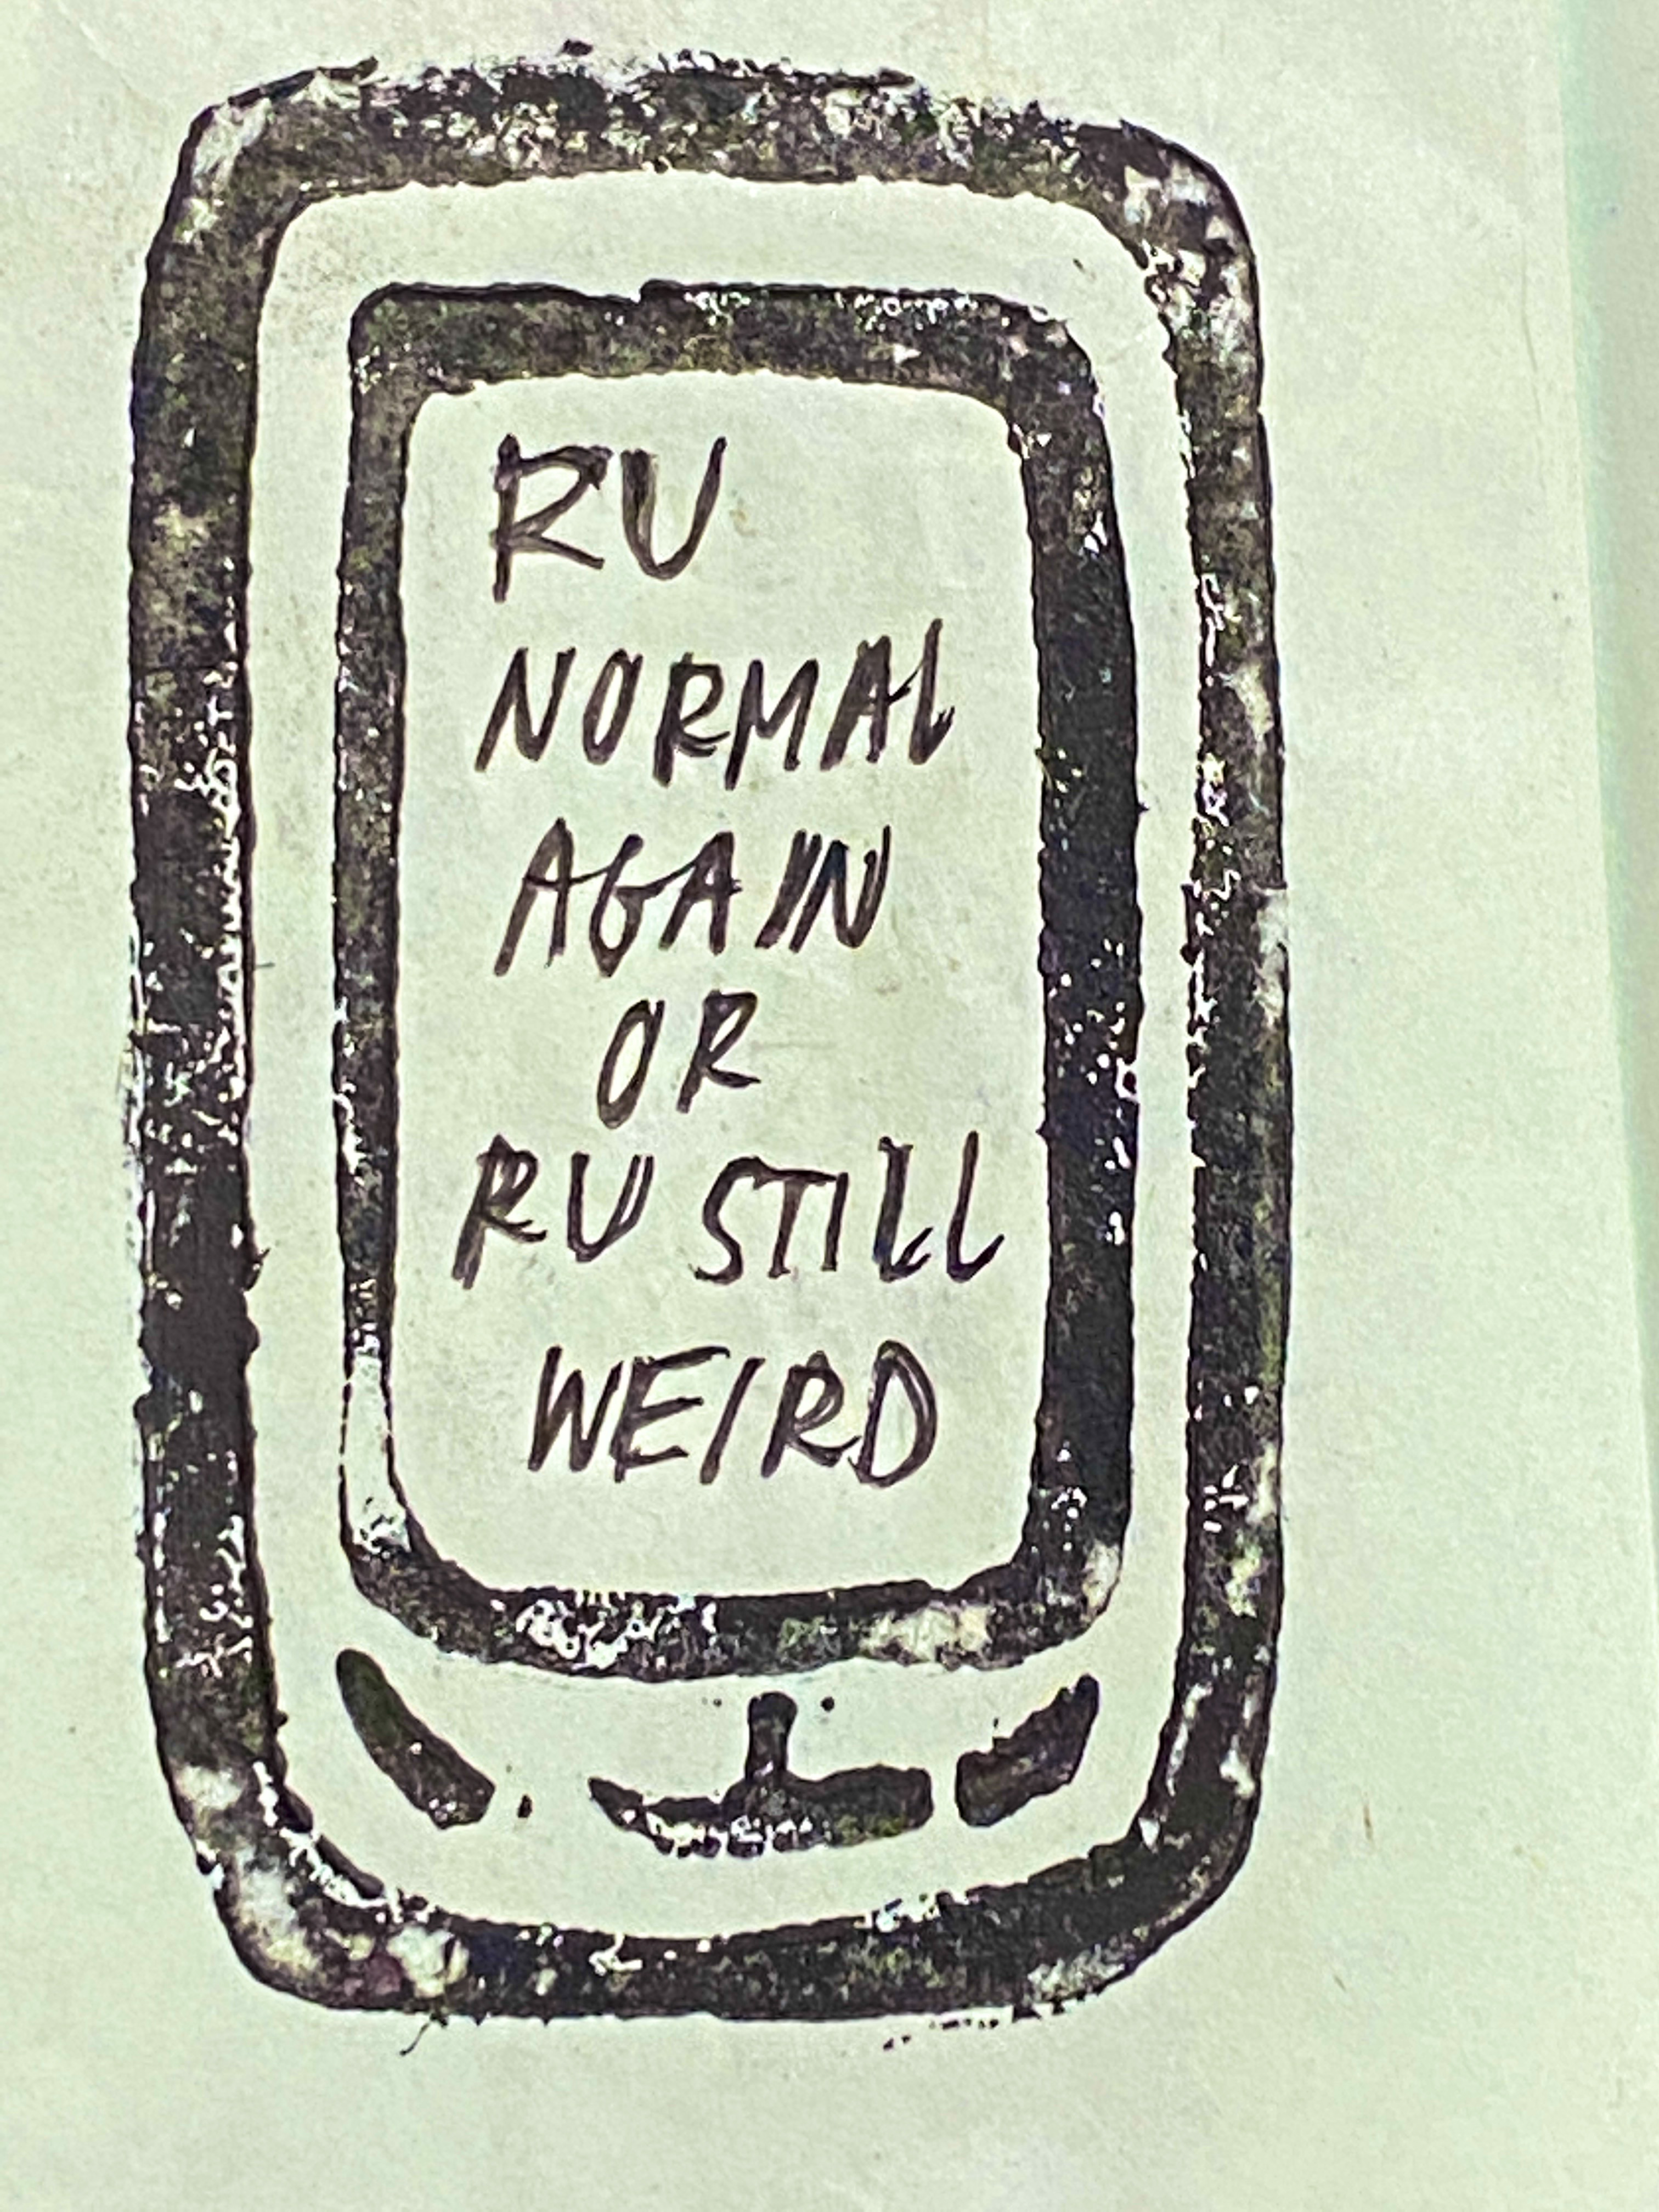 RU
NORMAL
AGAIN
OR
RU STILL
WEIRD